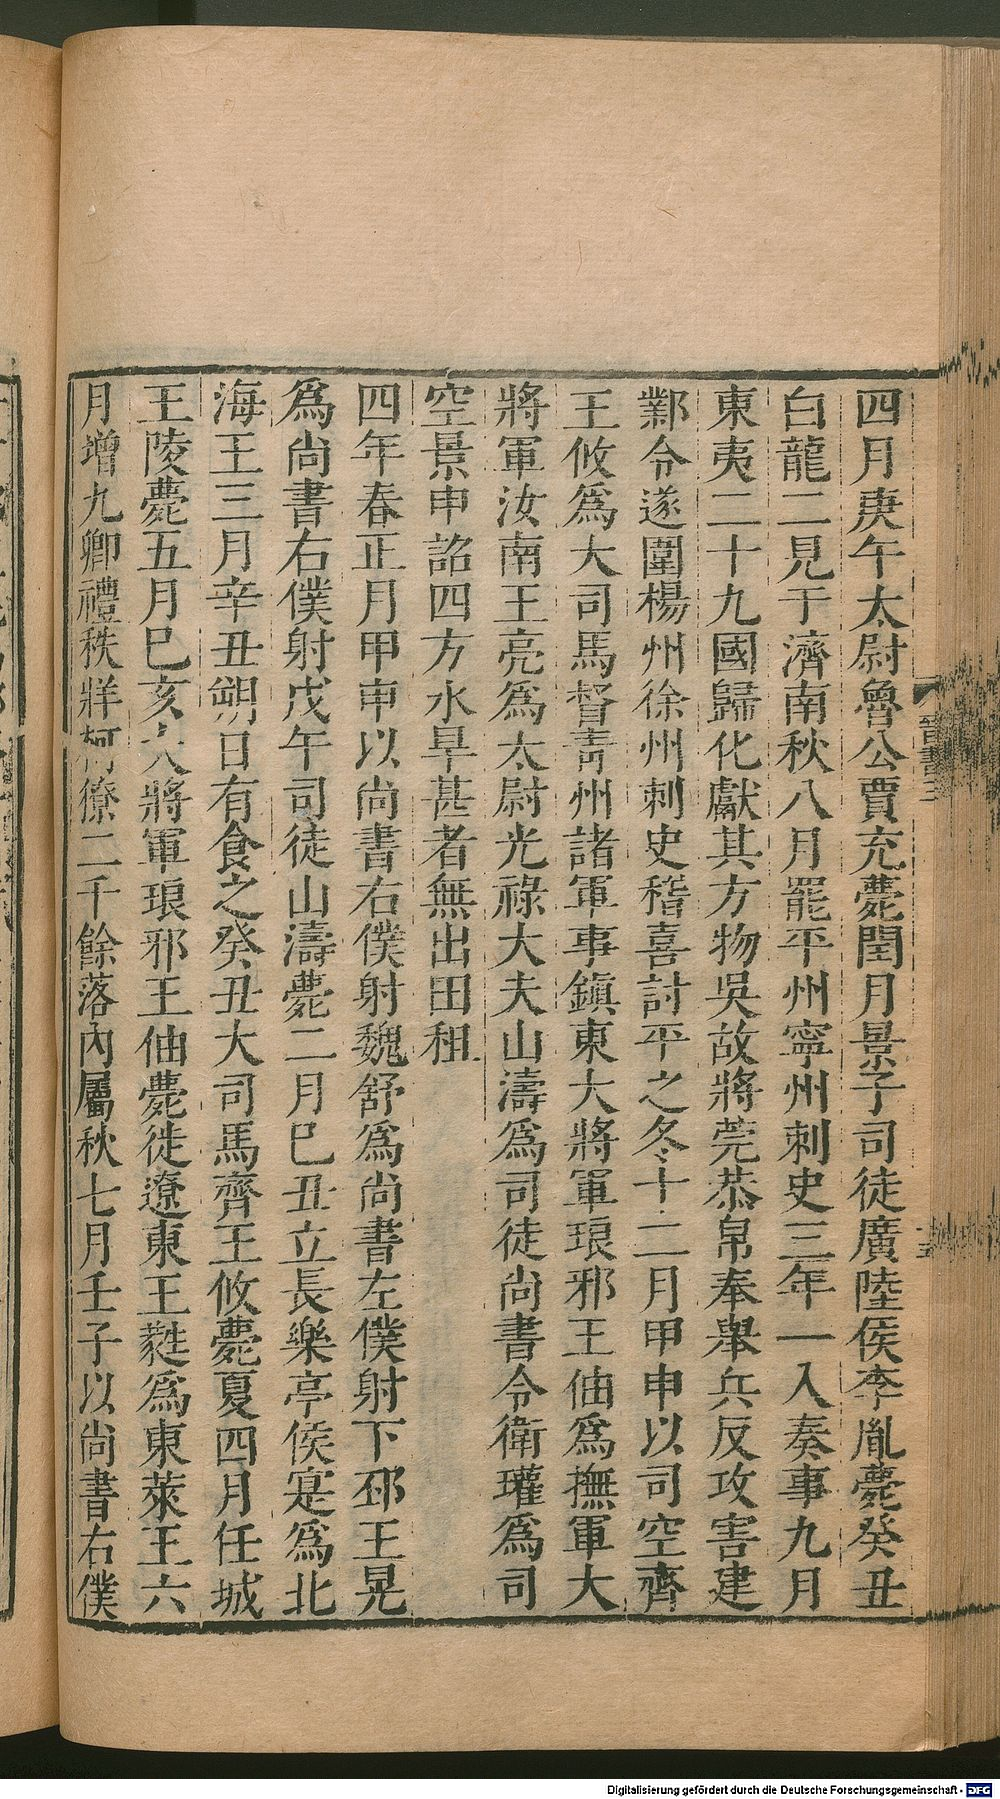 四月庚午太尉魯公賈充薨閏月景子司徒廣陸侯李胤薨癸丑
白龍二見于濟南秋八月罷平州寧州刺史三年一入奏事九月
東夷二十九國歸化獻其方物吳故將莞恭帛奉舉兵反攻害建
鄴令遂圍楊州徐州刺史稽喜討平之冬十二月甲申以司空齊
王攸爲大司馬督青州諸軍事鎮東大將軍琅邪王伷爲撫軍大
將軍汝南王亮爲太尉光祿大夫山濤爲司徒尚書令衛瓘爲司
空景申詔四方水旱甚者無出田租
四年春正月甲申以尚書右僕射魏舒爲尚書左僕射下邳王晃
爲尚書右僕射戊午司徒山濤薨二月巳丑立長樂亭侯寔爲北
海王三月辛丑朔日有食之癸丑大司馬齊王攸薨夏四月任城
王陵薨五月巳亥大將軍琅邪王伷薨徙遼東王蕤爲東萊王六
月增九卿禮秩牂柯獠二千餘落內屬秋七月壬子以尚書右僕
晉書三
Digitalisierung gefördert durch die Deutsche Forschungsgemeinschaft - DFG